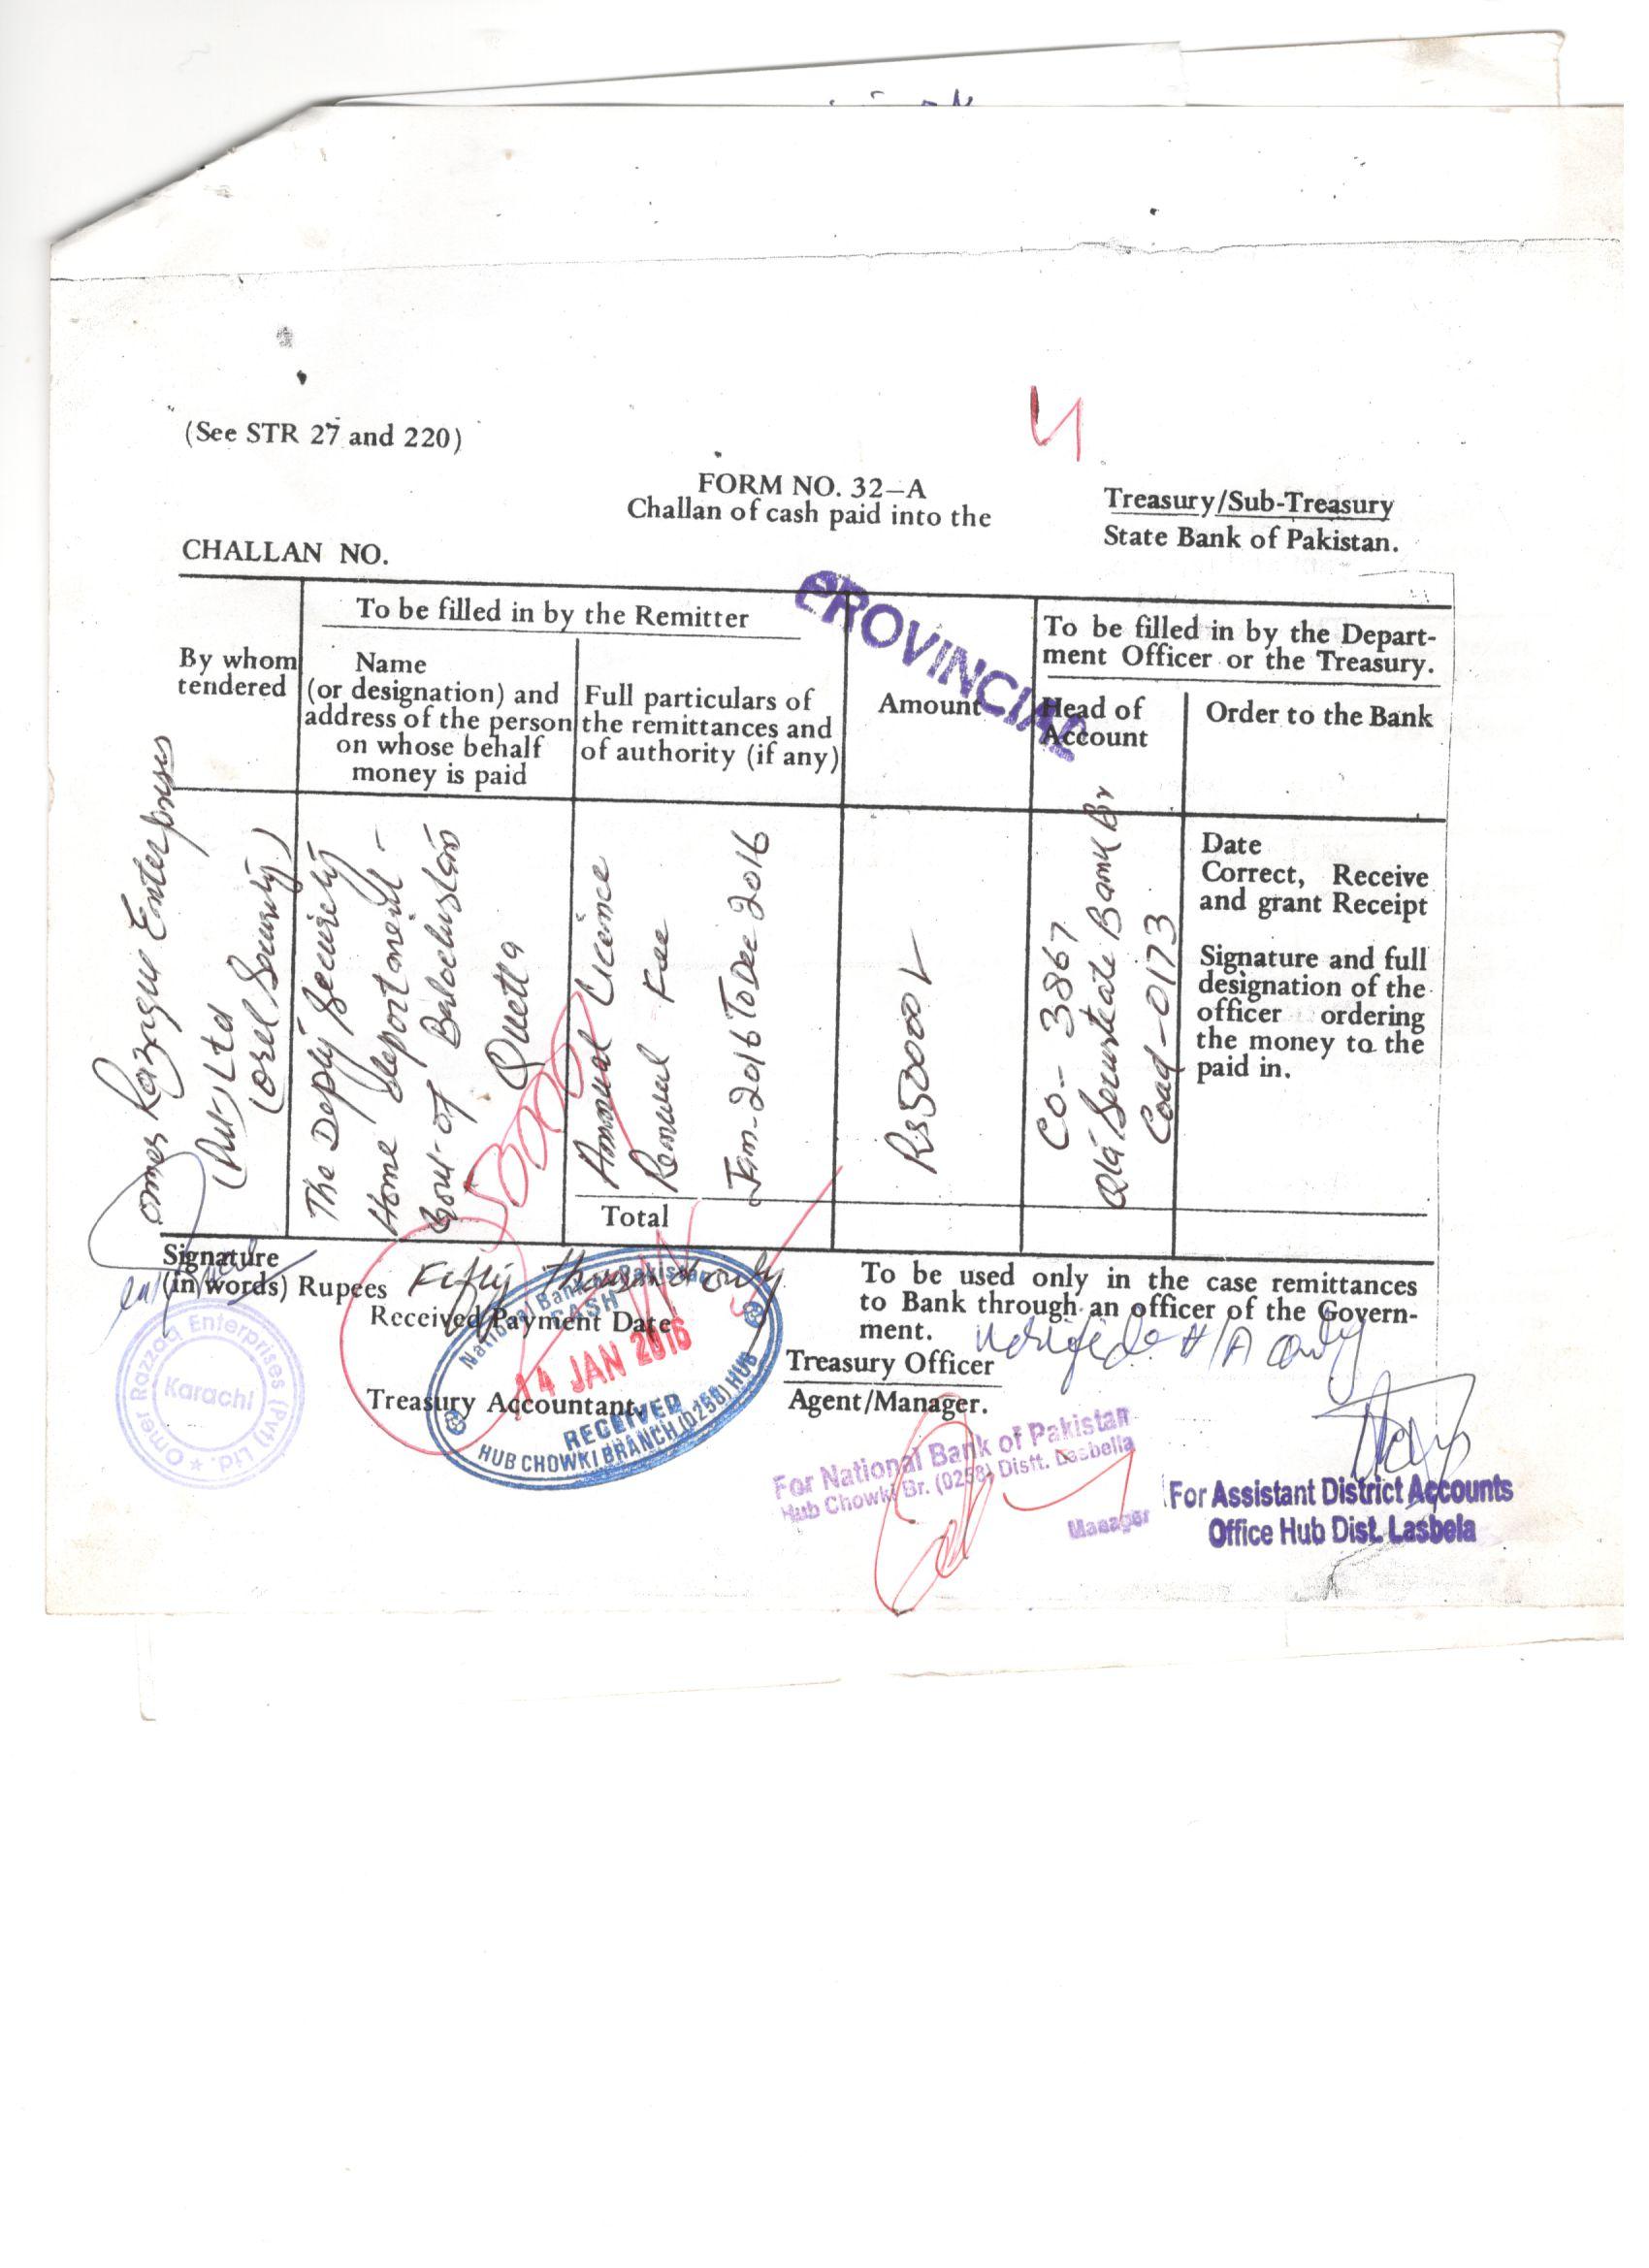 (See STR 27 and 220)
FORM NO. 32-A
Challan of cash paid into the
Treasury/Sub-Treasury
State Bank of Pakistan.
CHALLAN NO.
PROVINCIAL
By whom
tendered
To be filled in by the Remitter
Name
(or designation) and
address of the person
on whose behalf
money is paid
Full particulars of
the remittances and
of authority (if any)
Amount
To be filled in by the Depart-
ment Officer or the Treasury.
Head of
Account
Order to the Bank
Omer Razzque Enterprises
(Pvt) Ltd
(Orel Security)
The Deputy Security
Home Deportment -
Govt-of Balochistan
Quetta
50000
Annual Licence
Renewal Fee
Jan-2016 To Dec 2016
Rs 50000/-
Co- 3867
Qta Secreteate Bank Br
Coad-0173
Date
Correct, Receive
and grant Receipt
Signature and full
designation of the
officer ordering
the money to the
paid in.
Total
Signature
(in words) Rupees Fifty Thousand only
Received Payment Date
Treasury Accountant
National Bank of Pakistan
CASH
14 JAN 2016
RECEIVED
HUB CHOWKI BRANCH (0258) HUB
Omer Razzaq Enterprises (Pvt) Ltd.
Karachi
To be used only in the case remittances
to Bank through an officer of the Govern-
ment.
H/A only
Treasury Officer
Agent/Manager.
For National Bank of Pakistan
Hub Chowki Br. (0258) Distt. Lasbella
Manager
For Assistant District Accounts
Office Hub Dist. Lasbela